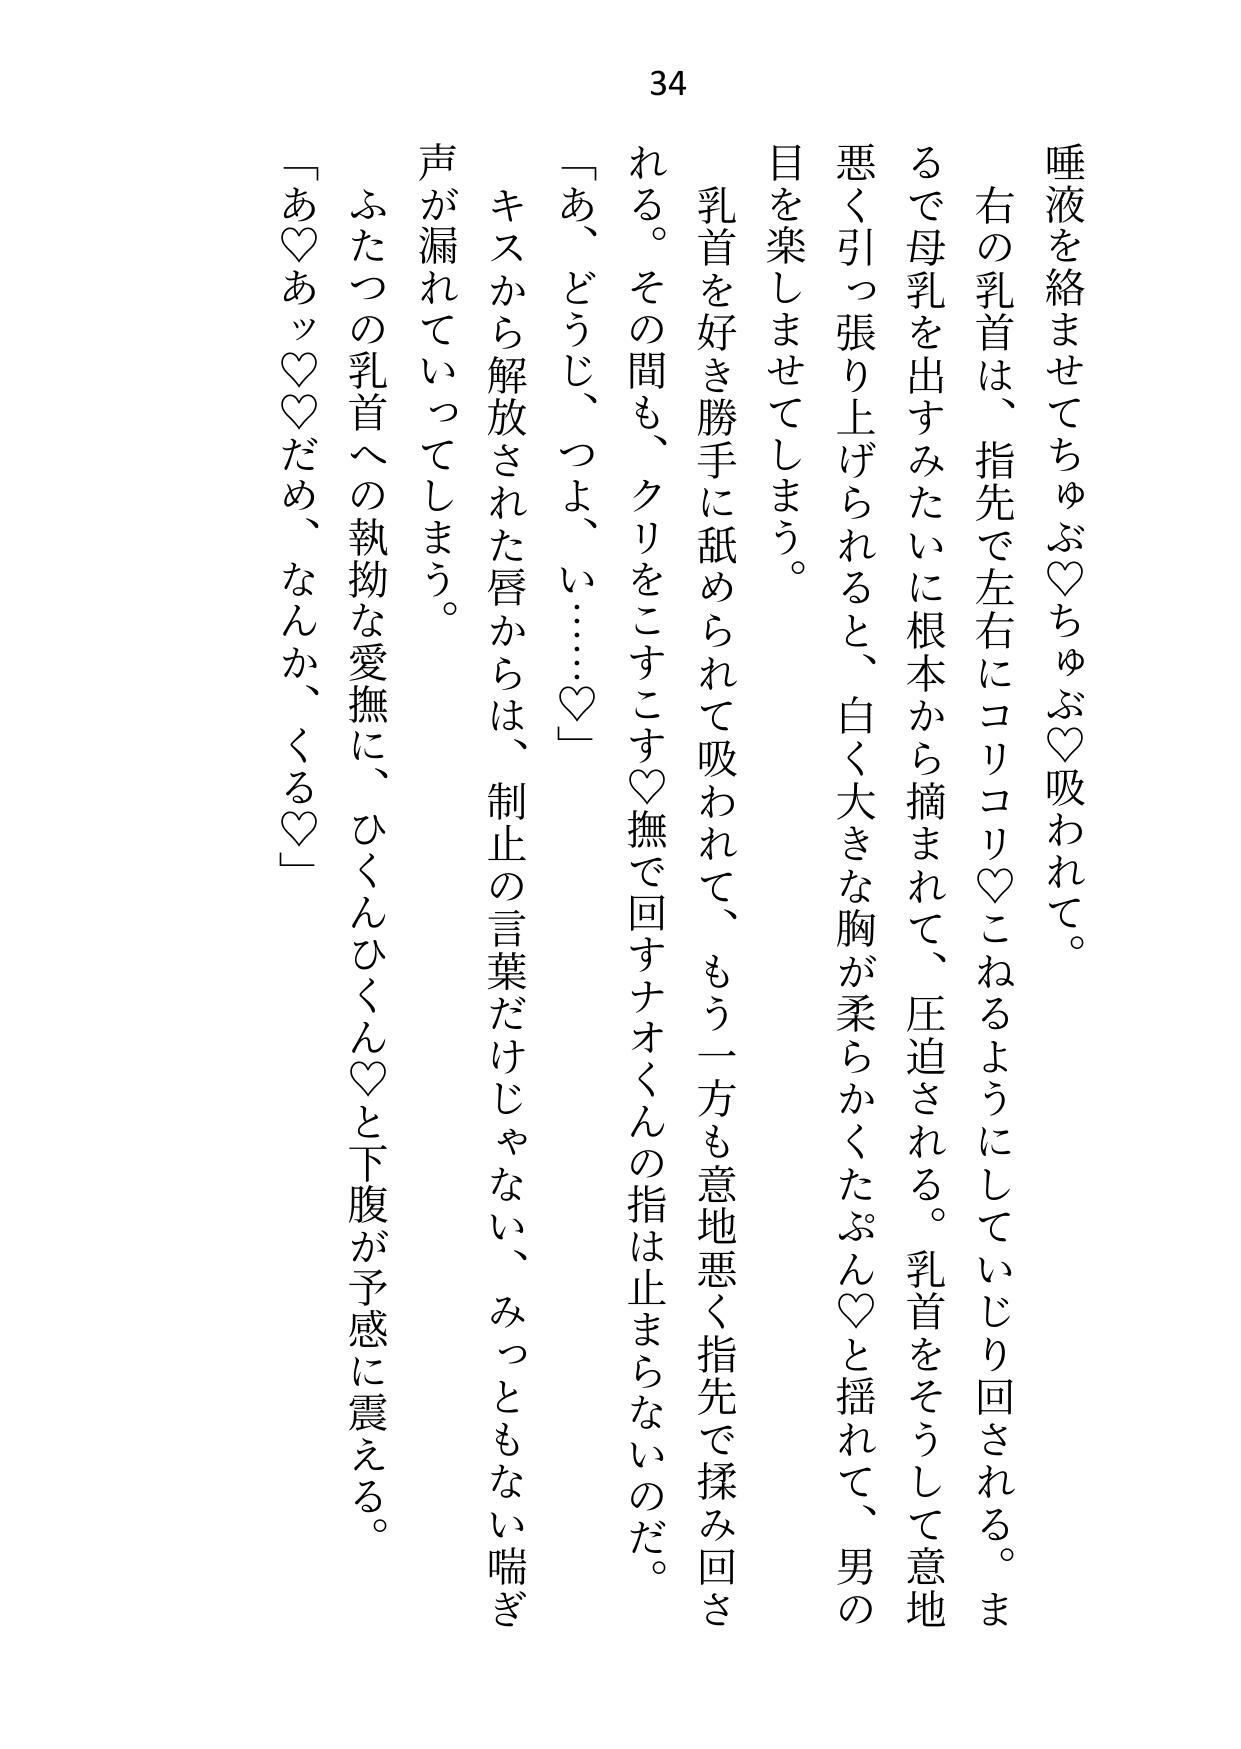 34
唾液を絡ませてちゅぶ♡ちゅぶ♡吸われて。
　右の乳首は、指先で左右にコリコリ♡こねるようにしていじり回される。ま
るで母乳を出すみたいに根本から摘まれて、圧迫される。乳首をそうして意地
悪く引っ張り上げられると、白く大きな胸が柔らかくたぷん♡と揺れて、男の
目を楽しませてしまう。
　乳首を好き勝手に舐められて吸われて、もう一方も意地悪く指先で揉み回さ
れる。その間も、クリをこすこす♡撫で回すナオくんの指は止まらないのだ。
「あ、どうじ、つよ、い……♡」
　キスから解放された唇からは、制止の言葉だけじゃない、みっともない喘ぎ
声が漏れていってしまう。
　ふたつの乳首への執拗な愛撫に、ひくんひくん♡と下腹が予感に震える。
「あ♡あッ♡♡だめ、なんか、くる♡」